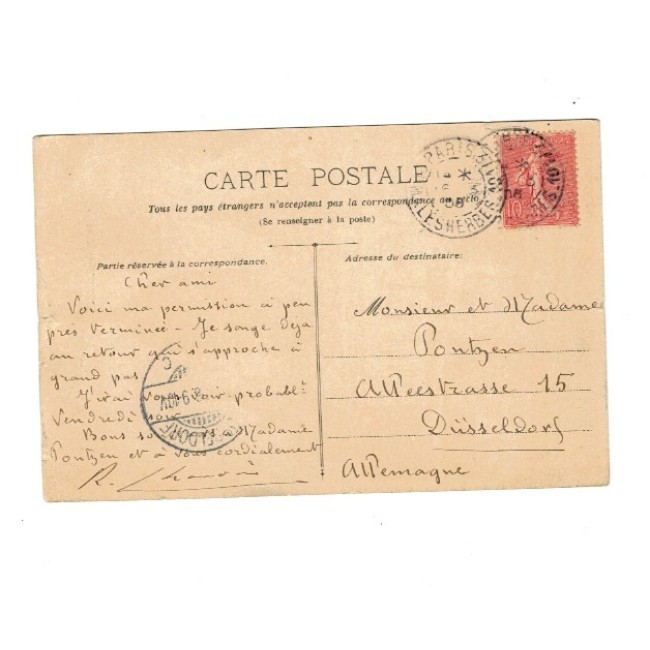 CARTE POSTALE
Tous les pays étrangers n'acceptent pas la correspondance au recto
(Se renseigner à la poste)
Partie réservée à la correspondance.
Cher ami
Voici ma permission à peu
près terminée - Je songe déjà
au retour qui s'approche à
grand pas
J'irai vous voir probablt
Vendredi soir
Bons à Madame
Pontzen et à vous cordialement
R.
Adresse du destinataire:
Monsieur et Madame
Pontzen
Alleestrasse 15
Düsseldorf
Allemagne
PARIS
MALESHERBES
10
DÜSSELDORF
C